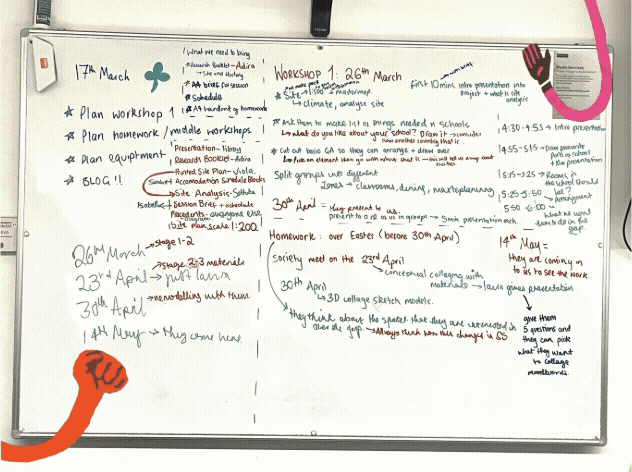 17th March
What we need to bring
Research Booklet - Adira
Site and History
A4 brief for session
Schedule
A4 handout of homework
* Plan Workshop 1
* Plan homework / middle workshops
* Plan equiptment
* BLOG!!
Presentation - 
Research Booklet - Adira
Printed Site Plan - Viola
Accomodation Schedule Blocks
Site Analysis -
Session Brief + schedule
Precedents - everyone else
Plan scale 1:200
26th March → stage 1-2
stage 2-3 materials
23rd April →
30th April → remodelling with them
14th May → they come here
WORKSHOP 1: 26th March
first 10 mins intro presentation into
project + what is site
analysis
* Site → 1:500
↳ climate, analyse site
* Ask them to make list of things needed in schools
↳ what do you like about your school? Draw it - consider
how another country that is
* Cut out basic GA so they can arrange + draw over
Split groups into different
zones - classrooms, dining, masterplanning
30th April = They present to us.
present to one of us in groups → 5min presentation each
Homework: over Easter (before 30th April)
Society meet on the 23rd April
↳ conceptual collaging with
materials → Laura gives presentation
30th April
↳ 3D collage sketch models.
↳ they think about the spaces that they are interested in
over the gap → Always think how this changed is SS
4:30-4:55 → Intro presentation
4:55-5:15 → Draw favourite
parts of school
+ 10m presentation
5:15-5:25 → Rooms in
the school should
be?
5:25-5:50 → Arrangement
5:50-6:00 -
What we want
them to do in the
gap.
14th May =
They are coming in
to us to see the work
give them
5 questions and
they can pick
what they want
to collage
moodboards.